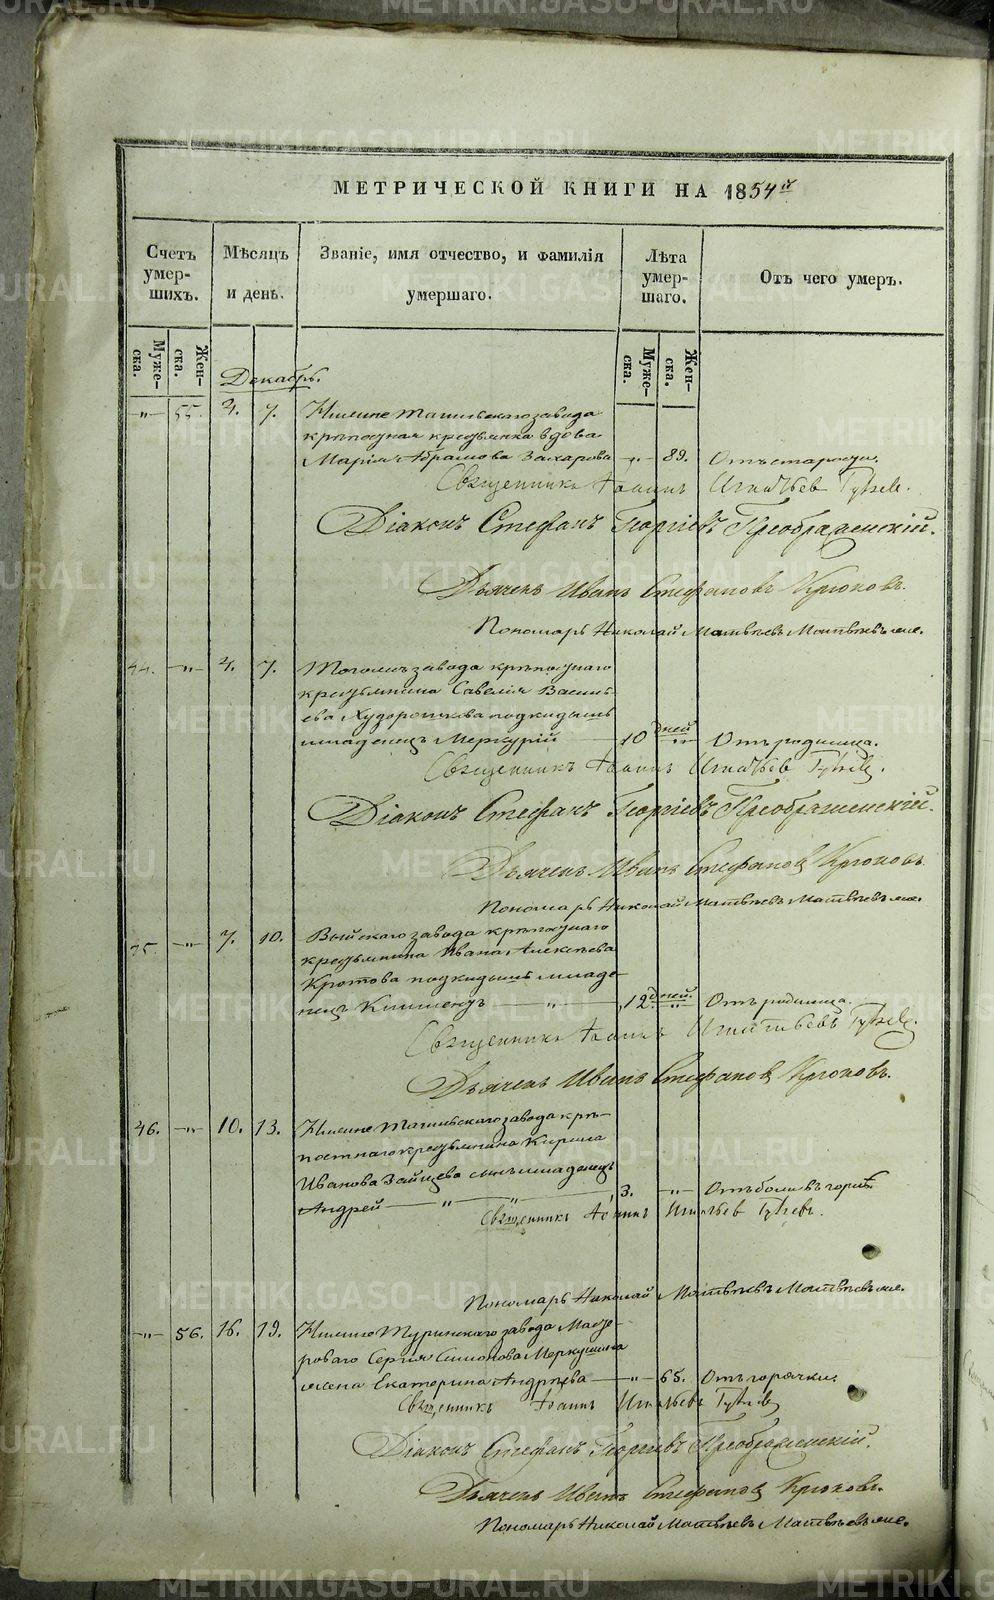 МЕТРИЧЕСКОЙ КНИГИ НА 1854й
Счетъ умерших. Мѣсяцъ и день. Званіе, имя отчество, и фамилія умершаго. Лѣта умершаго. Отъ чего умеръ.
Мужеска. Женска. Мужеска. Женска.
Декабрь.
-"- 55. 4. 7. Нижне Тагильскаго завода
крѣпостная крестьянка вдова
Марія Абрамова Захарова -"- 89. Отъ старости.
Священникъ Іоаннъ Игнатьевъ
Діаконъ Стефанъ Георгіевъ Преображенскій.
Дьячекъ Иванъ Стефановъ Крюковъ.
Пономарь Николай Матвѣевъ Матвѣевъ же.
44. -"- 4. 7. Тогожъ завода крѣпостнаго
крестьянина Савелія Василь-
ева подкидышъ
младенецъ Меркурій 10 дней -"- Отъ родимца.
Священникъ Іоаннъ Игнатьевъ
Діаконъ Стефанъ Георгіевъ Преображенскій.
Дьячекъ Иванъ Стефановъ Крюковъ
Пономарь Николай Матвѣевъ Матвѣевъ же.
-"- 7. 10. Выйскаго завода крѣпостнаго
крестьянина Ивана Алексѣева
Кротова подкидышъ младе-
нецъ -"- 12 дней. -"- Отъ родимца.
Священникъ Іоаннъ Игнатьевъ
Дьячекъ Иванъ Стефановъ Крюковъ.
46. -"- 10. 13. Нижне Тагильскаго завода крѣ-
постнаго крестьянина Кирила
Иванова Зайцева сынъ младенецъ
Андрей -"- -"- 3. -"- Отъ боли въ горлѣ
Священникъ Іоаннъ Игнатьевъ
Пономарь Николай Матвѣевъ Матвѣевъ же.
-"- 56. 16. 19. Нижне Туринскаго завода Масте-
роваго Сергія Симонова Меркушина
жена Екатерина Андрѣева -"- 65. Отъ горячки.
Священникъ Іоаннъ Игнатьевъ
Діаконъ Стефанъ Георгіевъ Преображенскій.
Дьячекъ Иванъ Стефановъ Крюковъ.
Пономарь Николай Матвѣевъ Матвѣевъ же.
METRIKI.GASO-URAL.RU